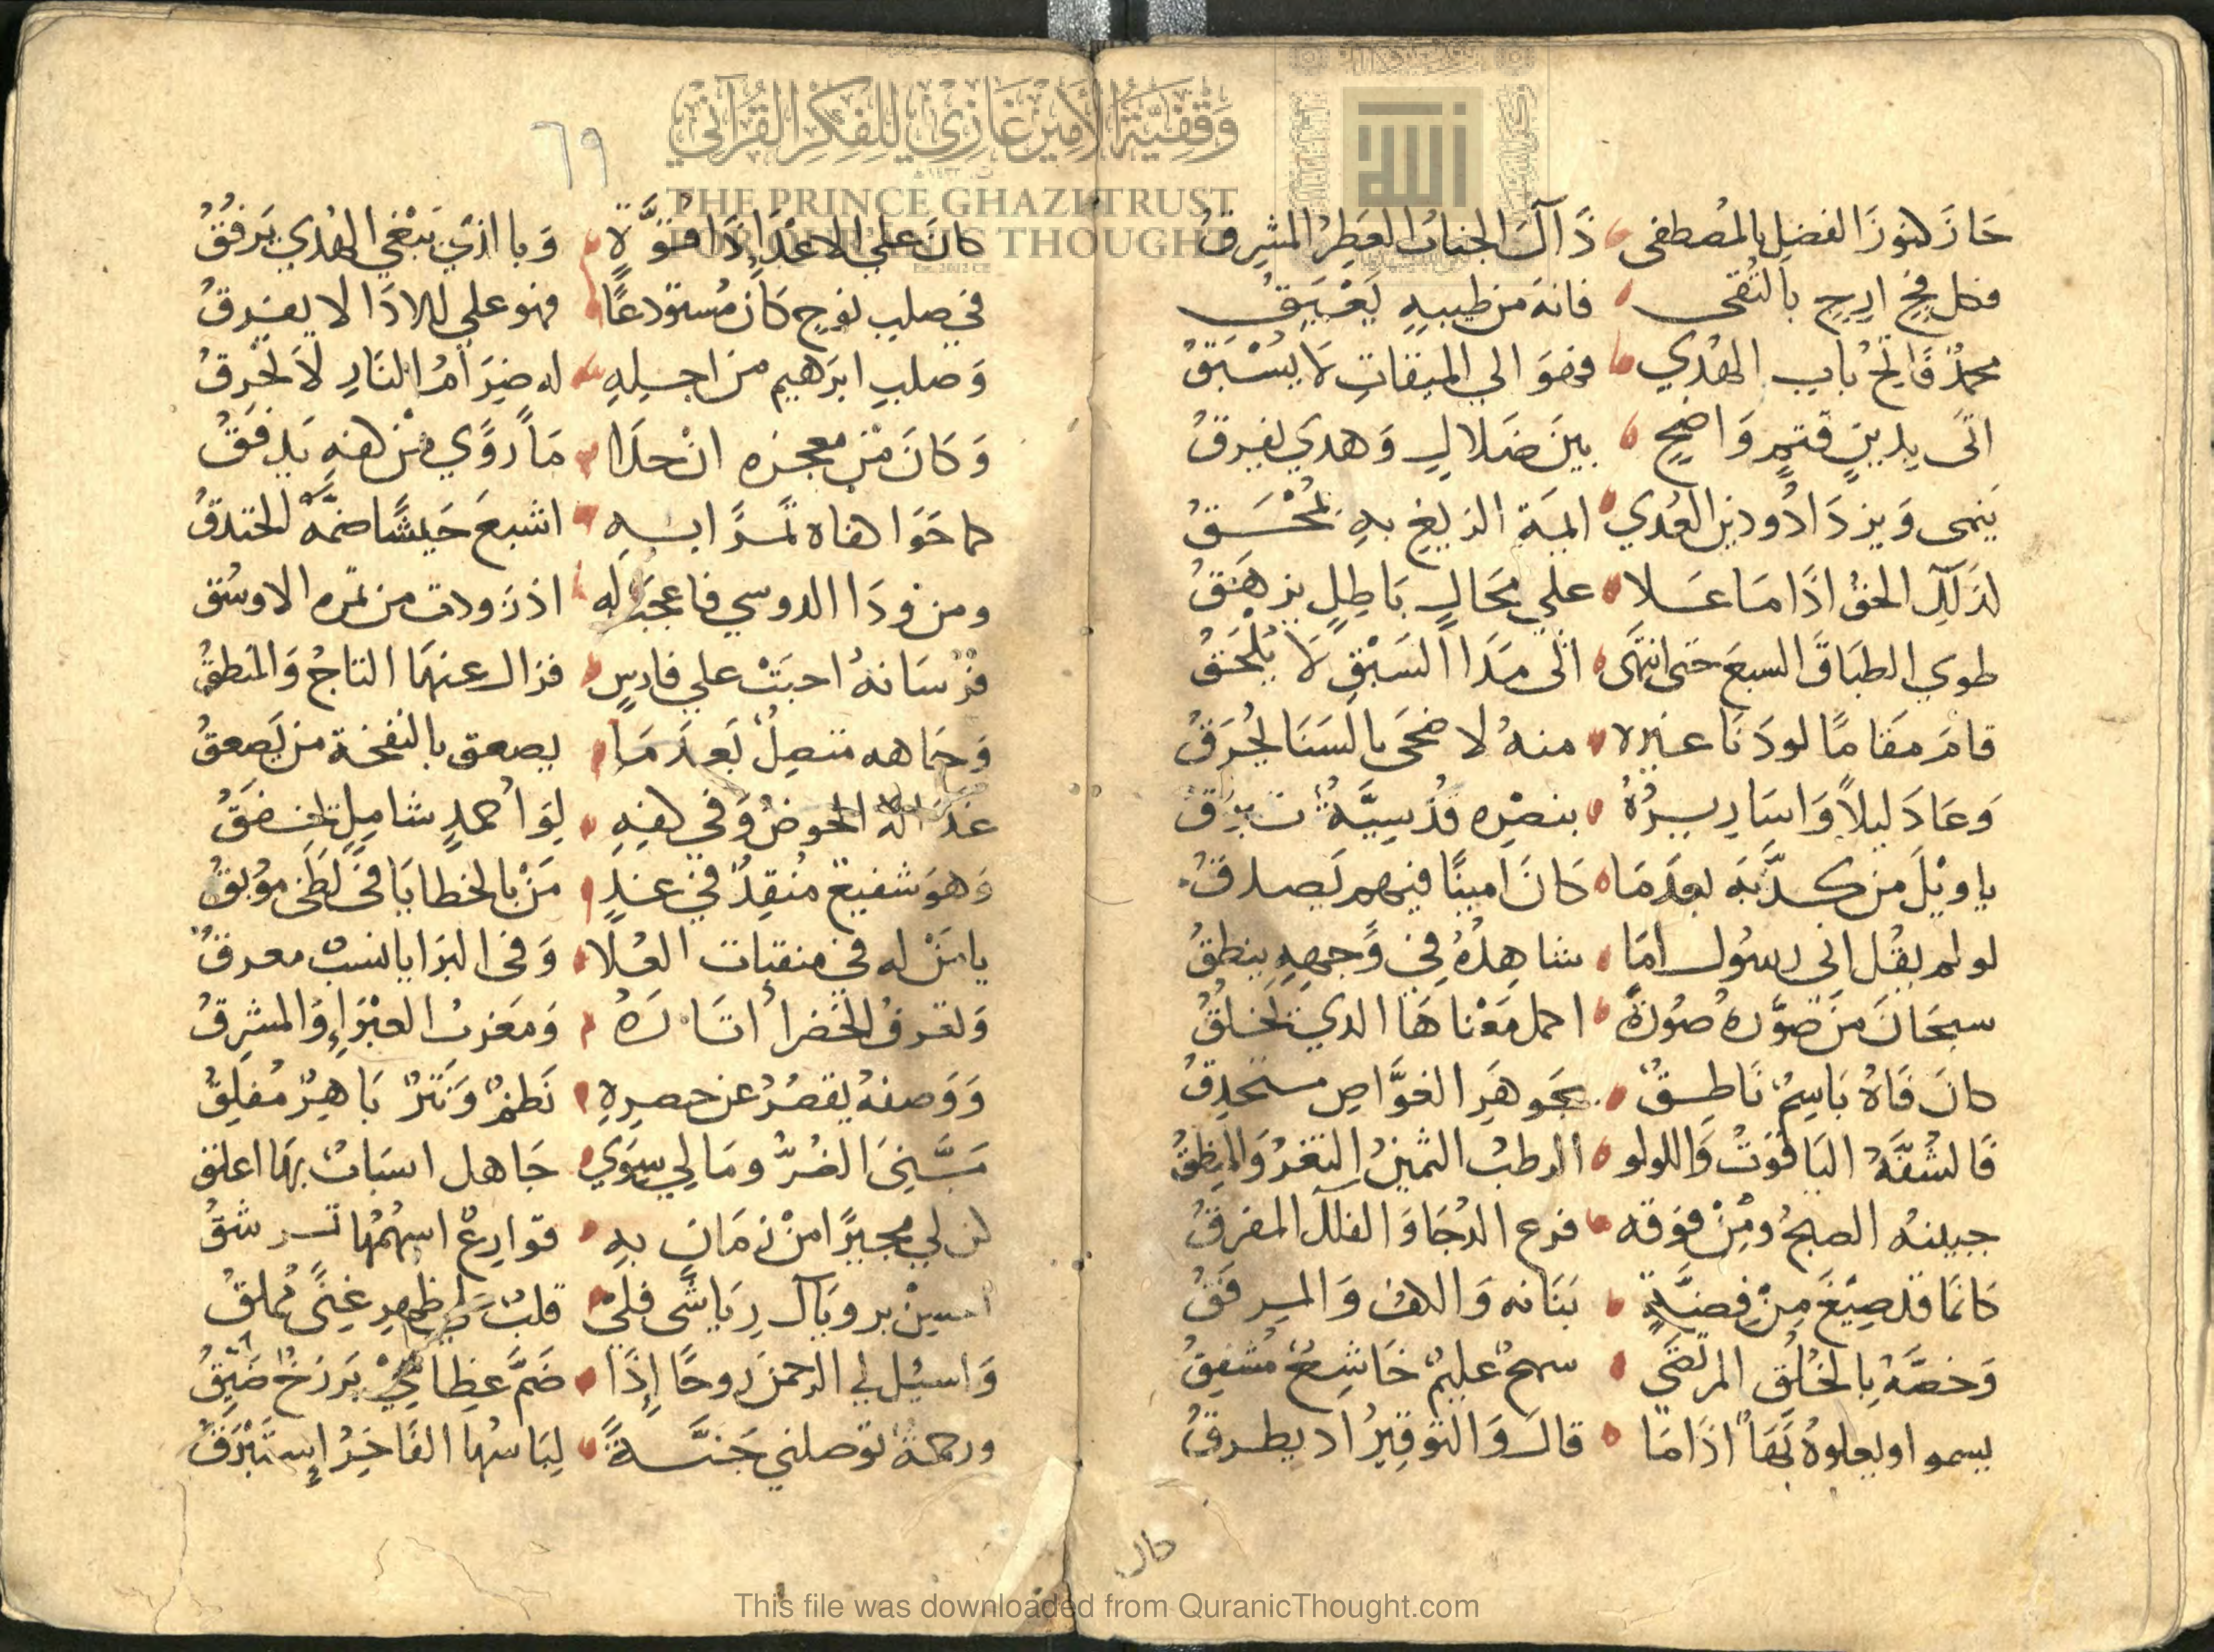 حَازَ كنوزَ الفضلِ المُصطفى ذَاكَ الجنابُ العَطِرُ المشرِقُ
فكل فجٍ اريجٍ بالتُقى فانه من طيبهِ يَعْبَقُ
محمدٌ فَاتِحُ بابِ الهُدي فهوَ الي الميقاتِ لا يُسْبَقُ
اتى بدينٍ قيمٍ وَاضحٍ بينَ ضلالٍ وَهدي يفرقُ
يَنمى وَيزدَادُ ودين العُدي اليهَ الزيغِ بهِ يُمْحَقُ
كذلك الحقُ اذَا مَا عَلا علي محَالٍ بَاطِلٍ يزهَقُ
طوي الطبَاقَ السبعَ حتى انتهَى الى مَدَا السَبْقِ لا يُلْحَقُ
قامَ مقَامًا لودَنَا غيره منهُ لاضحَى بالسَنَا يُحرَقُ
وَعَادَ ليلاً وَاسَارِيرُهُ بنصرِه قُدْسِيَّةٌ تبرقُ
ياويْلَ من كذَّبَه بعدَمَا كانَ امينًا فيهم يَصدقُ
لو لم يقُل اني رسُول امَا شاهِدُهُ في وَجهِهِ ينطقُ
سبحَانَ منَ صوَّرهُ صُورَةً اكمل مَعْناهَا الذي يَخلقُ
كانَ فَاهُ بَاسِمٌ نَاطِقٌ بجَوهَرِ الغوَّاصِ مستحدِقُ
فَالشفَّهُ اليَاقُوتُ وَاللولو الرطبُ الثمينُ الثغرُ وَالمنِطقُ
جبينهُ الصبحُ ومِنْ فوَقه فرع الدُجَا وَالفلك المفرقُ
كانمَا قد صِيْغَ مِنْ فِضةٍ بَنَانه وَالكفُ وَالمرفَقُ
وَخصَّهُ بِالخُلُقِ المرتضَي سمحٌ عليمٌ خَاشِعٌ مُشفِقُ
يسموا ويعلوهُ بَهَاً اذَا مَا قالَ وَالتوقيرُ اد يطرقُ
كان
٦٩
كانَ علي الاعْدَا ذَا قُوَّةٍ وَباالذي يَبْغي الهُدي يَرفُقُ
في صلبِ نوحٍ كانَ مُستودعًا فهو علي للاذَا لا يغرقُ
وَصلبِ ابرَهيم منَ اجلِهِ له ضِرَامُ النَارِ لاَ تحرِقُ
وَكَانَ مْن معجزه انْ حلَا مَاً رَوَّي مْن كفهِ يَدفَقُ
كما حَوَا كفاه تمرًا بهِ اشبعَ جَيشًا ضمَّهُ الخندقُ
ومن زودَا الدوسي فاعجَبْ له اذ زودت من تمره الاوسُق
فرْسَانهُ احبَتْ علي فارسٍ فزال عنهَا التاجُ وَالمنطقُ
وَجَاهه متصِلٌ بَعدَ مَا يصعق بالنفخة من يَصعقُ
غدَا له الحوضُ وَفي كفهِ لِوَا حمدٍ شاملٍ يخفقُ
وَهوَ شفيعٌ مُنقِدٌ في غدٍ مَنْ بالخطايَا في لظى موُبَقُ
يا مَنْ له في منقبات العُلا وَفي البرَايا نسبٌ معرقُ
وَتعرفُ الخضراُ اثَارَهُ وَمَغربُ الغبْرَاءِ وَالمشرِقُ
وَوَصفهُ يقصُرُ عن حصرِهِ نَظمٌ وَنَثرٌ بَاهِرٌ مُفلِقُ
مَسَّنِيَ الضُرُّ ومَا لي سِوَي جَاهك اسبَابٌ بهَا اعلق
كن لي مجيرًا منْ زمَانٍ بهِ قوارِعٌ اسهُمُهَا ترشقُ
وَاسئل لي الرحمنَ رَوحًا إِذَا ضَمَّ عِظامِيْ بَرزَخٌ ضَيِّقُ
ورحمةً توصلني جَنَّةً لِبَاسُهَا الفَاخِرُ إِستَبْرَقُ
وقفية الأمير غازي للفكر القرآني
THE PRINCE GHAZI TRUST
FOR QUR'ANIC THOUGHT
Est. 2012 CE
الله
This file was downloaded from QuranicThought.com